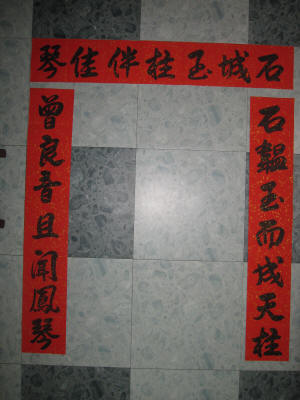 石城玉柱伴佳琴
石韞玉而成天柱
曾良音且聞鳳琴